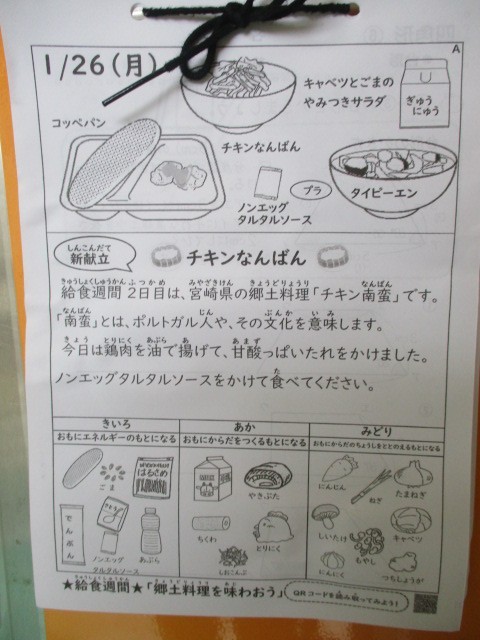 1/26(月)
A
キャベツとごまの
やみつきサラダ
ぎゅう
にゅう
コッペパン
チキンなんばん
ノンエッグ
タルタルソース
プラ
タイピーエン
しんこんだて
新献立
チキンなんばん
きゅうしょくしゅうかん ふつかめ みやざきけん きょうどりょうり なんばん
給食週間 2日目は、宮崎県の郷土料理「チキン南蛮」です。
なんばん じん ぶんか いみ
「南蛮」とは、ポルトガル人や、その文化を意味します。
きょう とりにく あぶら あ あまず
今日は鶏肉を油で揚げて、甘酸っぱいたれをかけました。
た
ノンエッグタルタルソースをかけて食べてください。
きいろ
おもにエネルギーのもとになる
あか
おもにからだをつくるもとになる
みどり
おもにからだのちょうしをととのえるもとになる
ごま
はるさめ
でんぷん
ノンエッグ
タルタルソース
あぶら
やきぶた
ちくわ
とりにく
しおこんぶ
にんじん
ねぎ
たまねぎ
しいたけ
もやし
キャベツ
にんにく
つちしょうが
きゅうしょくしゅうかん きょうどりょうり あじ
★給食週間★「郷土料理を味わおう」
QRコードを読み取ってみよう!